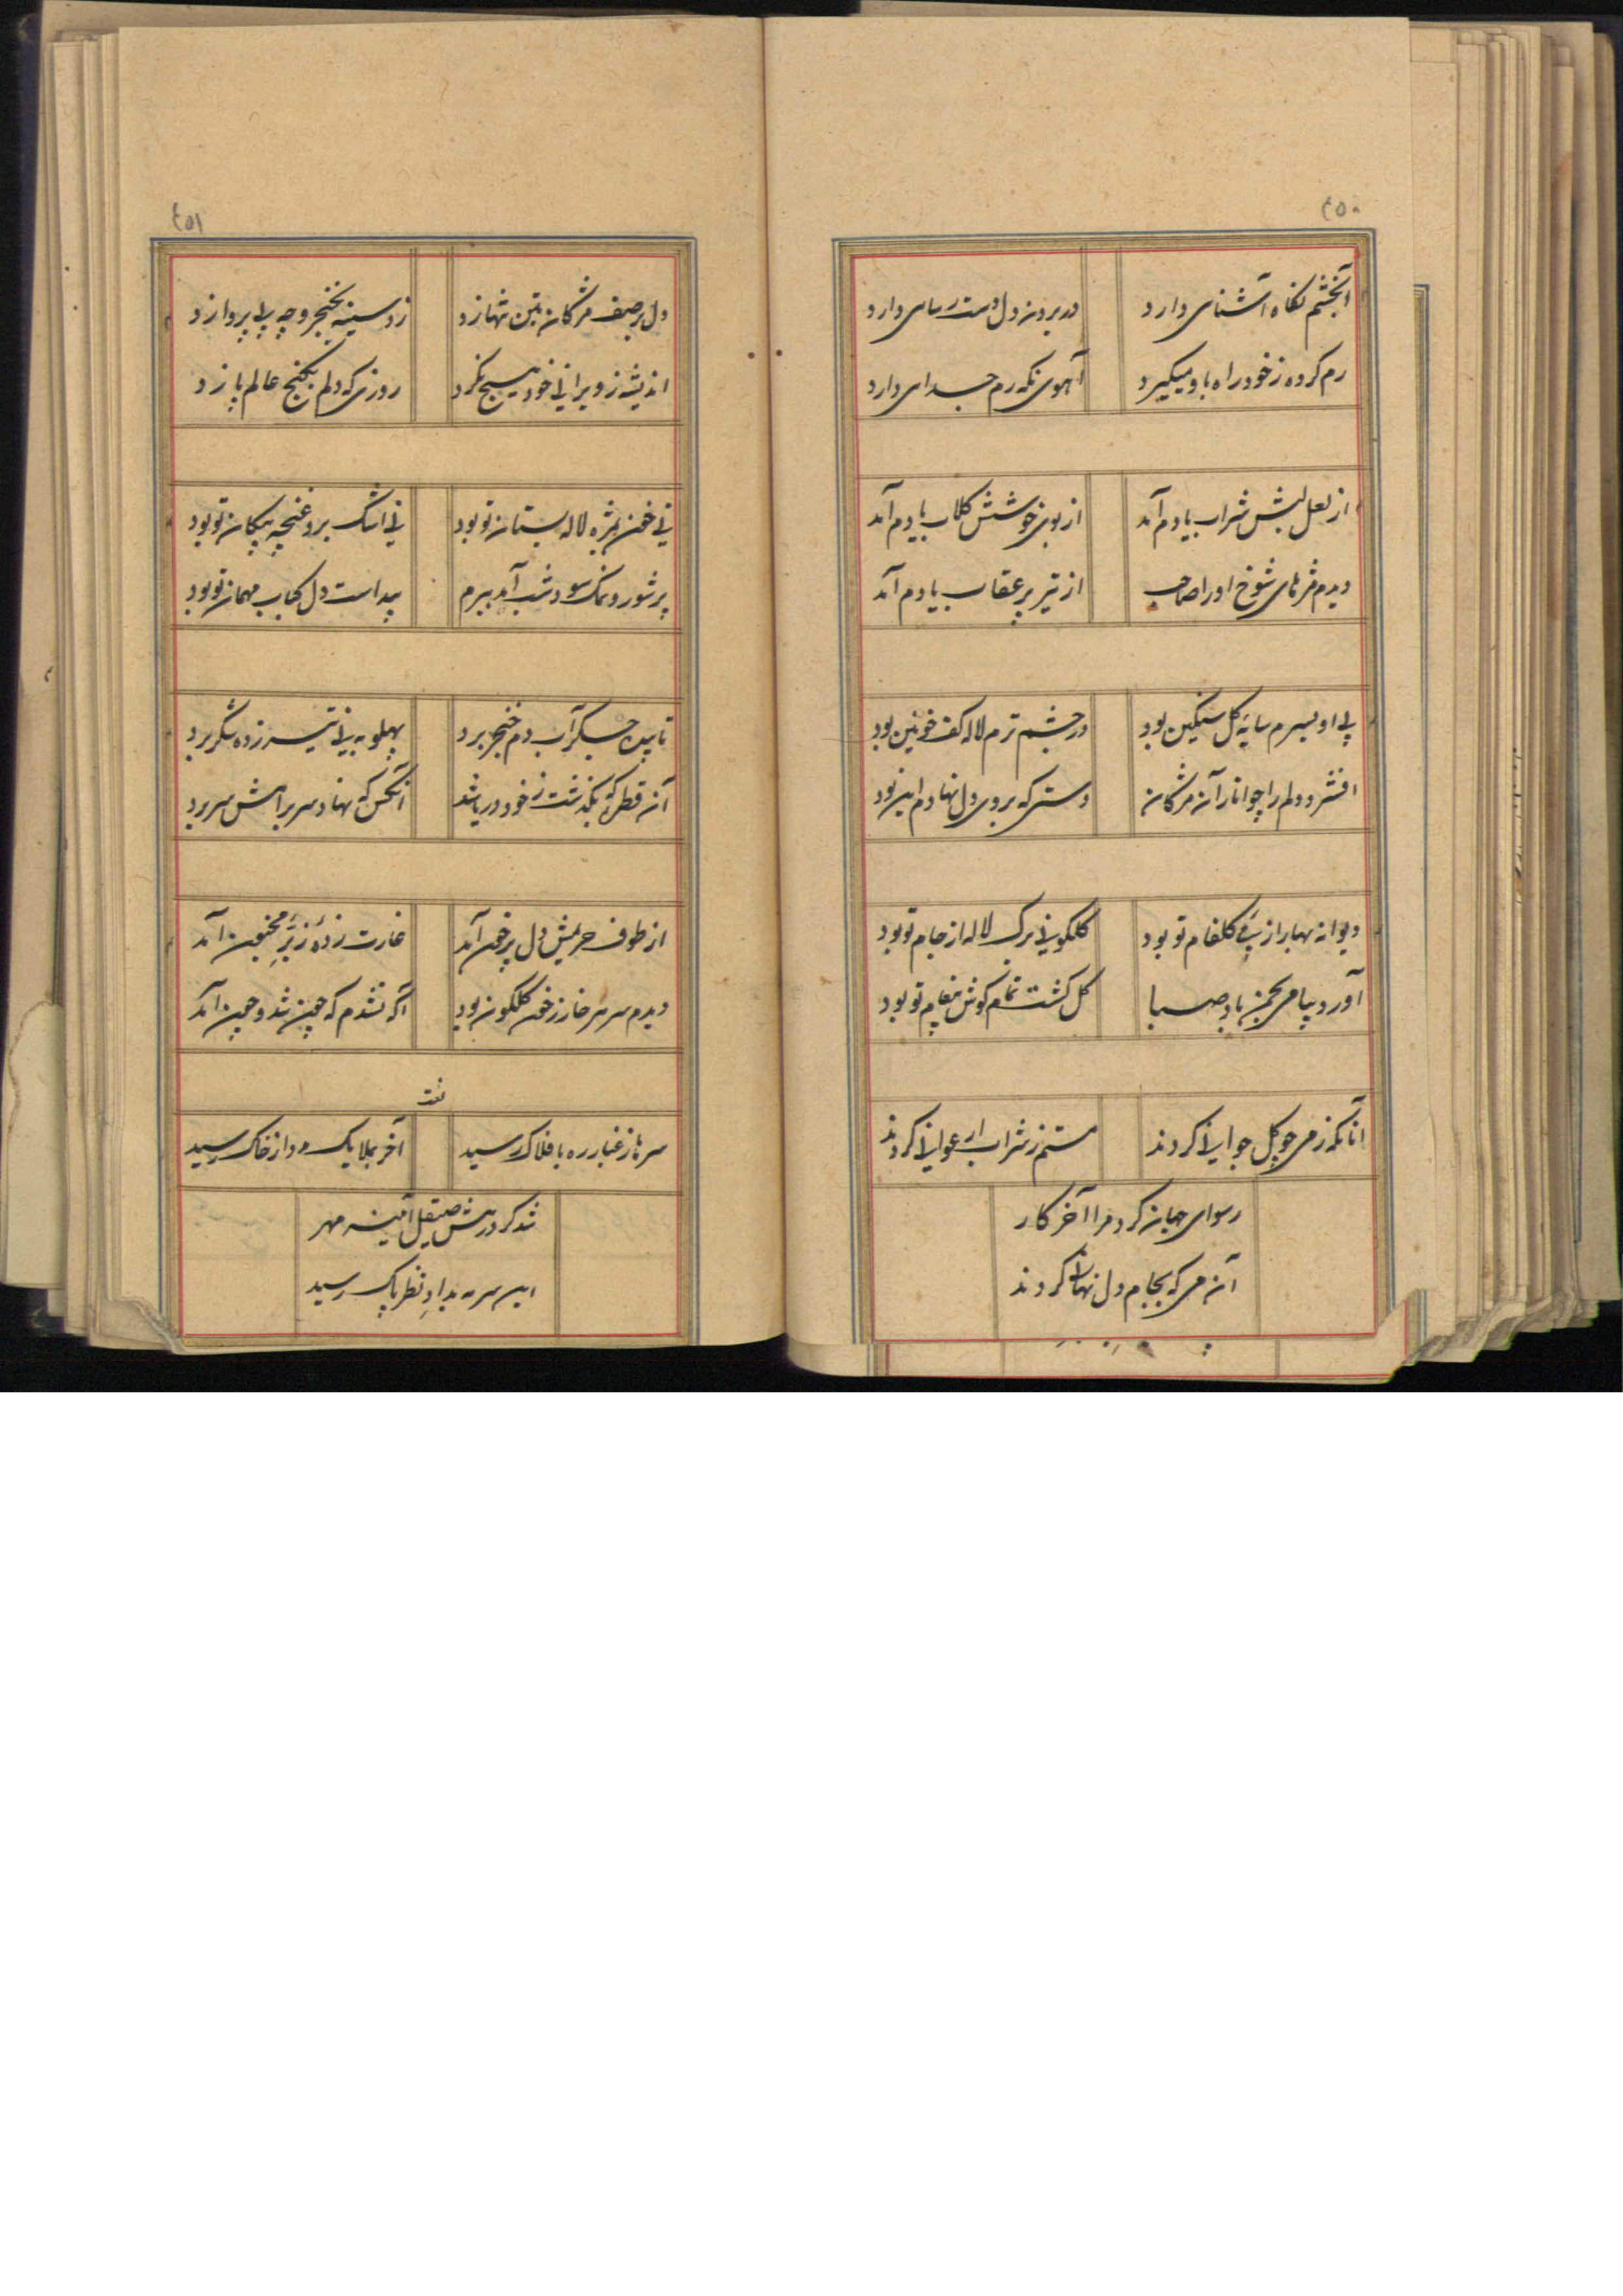 ٤٥٠
آنچشم نگاه آشنای دارد
در بردن دل دست رسای دارد
رم کرده ز خود راه باو میگیرد
آهوی نگه رم جدای دارد
از لعل لبش شراب یادم آمد
از بوی خوشش گلاب یادم آمد
دیدم مژهای شوخ اورا صاحب
از تیر پر عقاب یادم آمد
بی او بسرم سایه گل سنگین بود
در چشم ترم لاله کف خونین بود
افشرد دلم را چو انار آن مژگان
دستی که بروی دل نهادم این بود
دیوانه بهار از پی گلفام تو بود
گلگونی برگ لاله از جام تو بود
آورد پیامی بچمن باد صبا
گل گشت تمام گوش پیغام تو بود
آنانکه ز می چو گل جوانی کردند
مستم ز شراب ارغوانی کردند
رسوای جهان کرد مرا آخر کار
آن می که بجام دل نهانی کردند
٤٥١
دل بر صف مژگان بتن تنها زد
زد سینه بخنجر و چه بی پروا زد
اندیشه ز ویرانی خود هیچ نکرد
روزی که دلم بگنج عالم پا زد
نی خون مژه لاله بستان تو بود
نی اشک برو غنچه پیکان تو بود
پر شور و نمک سود شب آمد ببرم
پیداست دل کباب مهمان تو بود
تا پیچ جگر آب دم خنجر برد
پهلو به نی تیر زده شکر برد
آن قطره که بگذشت ز خود دریا شد
آنکس که نهاد سر براهش سر برد
از طوف حریمش دل پر خون آمد
غارت زده زیر مجنون آمد
دیدم سر هر خار ز خون گلگون بود
آگه نشدم که چون شد و چون آمد
نعت
سرها ز غبار ره بافلاک رسید
آخر بملایک مدد از خاک رسید
شد گرد رهش صیقل آیینه مهر
این سرمه بداد نظر پاک رسید